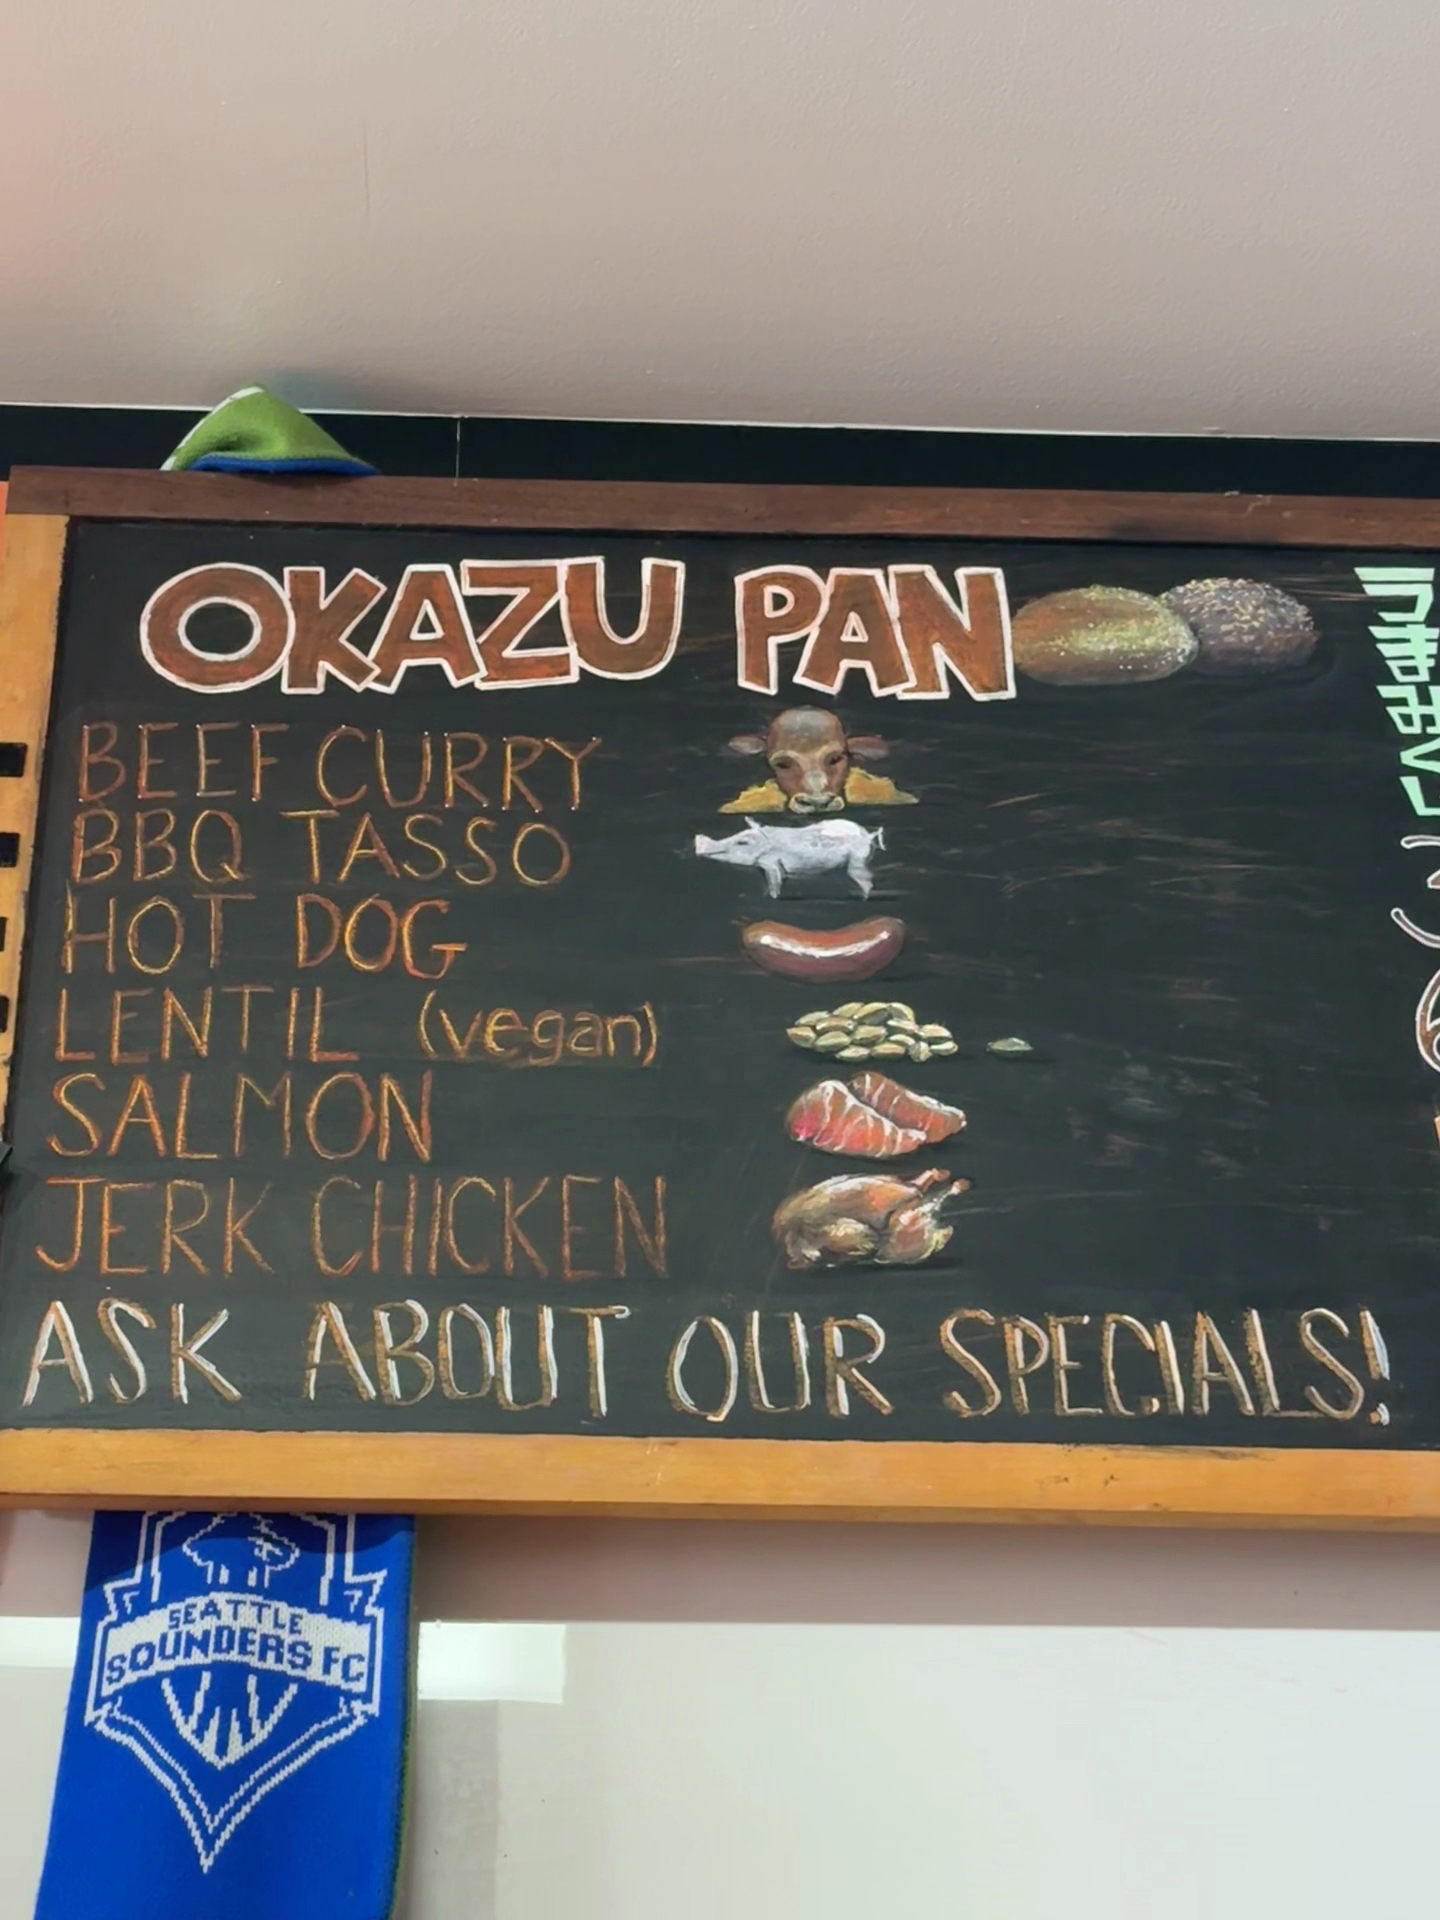 OKAZU PAN
BEEF CURRY
BBQ TASSO
HOT DOG
LENTIL (vegan)
SALMON
JERK CHICKEN
ASK ABOUT OUR SPECIALS!
SEATTLE
SOUNDERS FC